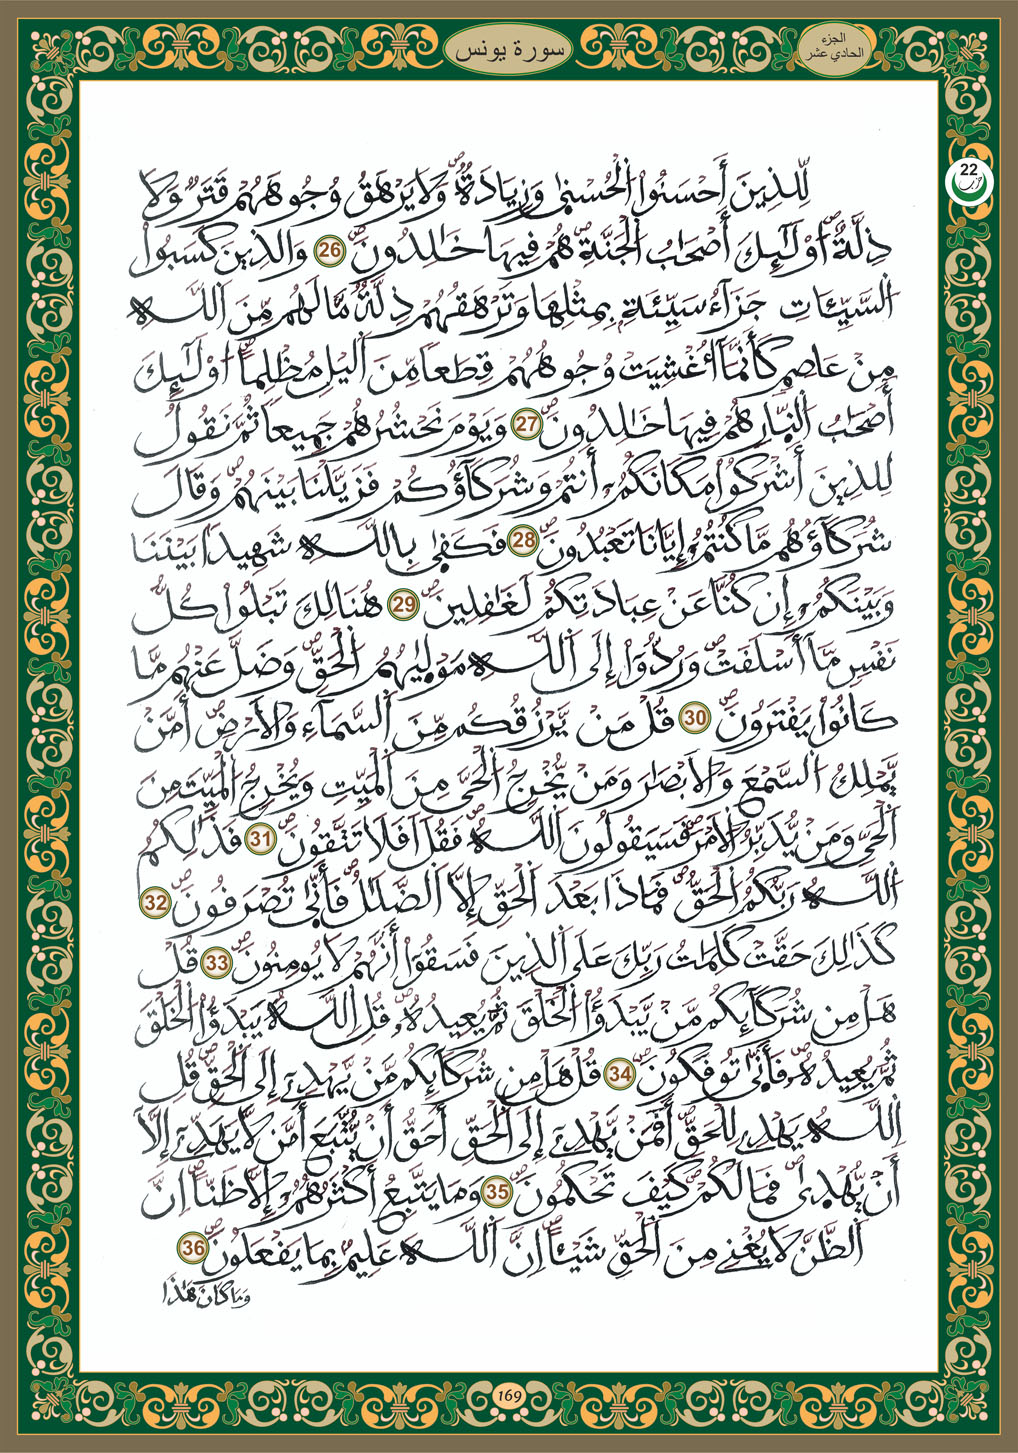 سورة يونس
الجزء
الحادي عشر
22
حزب
لِّلذِينَ أَحْسَنُوا۟ اُ۬لْحُسْن۪ىٰ وَزِيَادَةٌۖ وَلَا يَرْهَقُ وُجُوهَهُمْ قَتَرٌ وَلَا
ذِلَّةٌۖ ا۟وْلَٰٓئِكَ أَصْحَٰبُ اُ۬لْجَنَّةِۖ هُمْ فِيهَا خَٰلِدُونَۖ 26 وَالذِينَ كَسَبُوا۟
اُ۬لسَّيِّـَٔاتِ جَزَآءُ سَيِّئَةِۢ بِمِثْلِهَا وَتَرْهَقُهُمْ ذِلَّةٌۖ مَّا لَهُم مِّنَ اَ۬للَّهِ
مِنْ عَاصِمٍۖ كَأَنَّمَآ أُغْشِيَتْ وُجُوهُهُمْ قِطَعاً مِّنَ اَ۬ليْلِ مُظْلِماًۖ ا۟وْلَٰٓئِكَ
أَصْحَٰبُ اُ۬لنّ۪ارِ هُمْ فِيهَا خَٰلِدُونَۖ 27 وَيَوْمَ نَحْشُرُهُمْ جَمِيعاً ثُمَّ نَقُولُ
لِلذِينَ أَشْرَكُوا۟ مَكَانَكُمُۥٓ أَنتُمْ وَشُرَكَآؤُكُمْ فَزَيَّلْنَا بَيْنَهُمْۖ وَقَالَ
شُرَكَآؤُهُم مَّا كُنتُمُۥٓ إِيَّانَا تَعْبُدُونَۖ 28 فَكَف۪ىٰ بِاللَّهِ شَهِيداَۢ بَيْنَنَا
وَبَيْنَكُمُۥٓ إِن كُنَّا عَنْ عِبَادَتِكُمْ لَغَٰفِلِينَۖ 29 هُنَالِكَ تَبْلُوا۟ كُلُّ
نَفْسٍ مَّآ أَسْلَفَتْۖ وَرُدُّوٓا۟ إِلَى اَ۬للَّهِ مَوْل۪يٰهُمُ اُ۬لْحَقِّۖ وَضَلَّ عَنْهُم مَّا
كَانُوا۟ يَفْتَرُونَۖ 30 قُلْ مَنْ يَّرْزُقُكُم مِّنَ اَ۬لسَّمَآءِ وَالَارْضِ أَمَّنْ
يَّمْلِكُ اُ۬لسَّمْعَ وَالَابْصَٰرَ وَمَنْ يُّخْرِجُ اُ۬لْحَيَّ مِنَ اَ۬لْمَيِّتِ وَيُخْرِجُ اُ۬لْمَيِّتَ مِنَ
اَ۬لْحَيِّ وَمَنْ يُّدَبِّرُ اُ۬لَامْرَۖ فَسَيَقُولُونَ اَ۬للَّهُۖ فَقُلَ اَفَلَا تَتَّقُونَۖ 31 فَذَٰلِكُمُ
اُ۬للَّهُ رَبُّكُمُ اُ۬لْحَقُّۖ فَمَاذَا بَعْدَ اَ۬لْحَقِّ إِلَّا اَ۬لضَّلَٰلُۖ فَأَنّ۪ىٰ تُصْرَفُونَۖ 32
كَذَٰلِكَ حَقَّتْ كَلِمَٰتُ رَبِّكَ عَلَى اَ۬لذِينَ فَسَقُوٓا۟ أَنَّهُمْ لَا يُومِنُونَۖ 33 قُلْ
هَلْ مِن شُرَكَآئِكُم مَّنْ يَّبْدَؤُا۟ اُ۬لْخَلْقَ ثُمَّ يُعِيدُهُۥۖ قُلِ اِ۬للَّهُ يَبْدَؤُا۟ اُ۬لْخَلْقَ
ثُمَّ يُعِيدُهُۥۖ فَأَنّ۪ىٰ تُوفَكُونَۖ 34 قُلْ هَلْ مِن شُرَكَآئِكُم مَّنْ يَّهْدِےٓ إِلَى اَ۬لْحَقِّۖ قُلِ
اِ۬للَّهُ يَهْدِے لِلْحَقِّۖ أَفَمَنْ يَّهْدِےٓ إِلَى اَ۬لْحَقِّ أَحَقُّ أَنْ يُّتَّبَعَ أَمَّن لَّا يَهَدِّےٓ إِلَّآ
أَنْ يُّهْد۪ىٰۖ فَمَا لَكُمْۖ كَيْفَ تَحْكُمُونَۖ 35 وَمَا يَتَّبِعُ أَكْثَرُهُمُۥٓ إِلَّا ظَنّاًۖ اِنَّ
اَ۬لظَّنَّ لَا يُغْنِے مِنَ اَ۬لْحَقِّ شَيْـٔاًۖ اِنَّ اَ۬للَّهَ عَلِيمُۢ بِمَا يَفْعَلُونَۖ 36
وَمَا كَانَ هَٰذَا
169